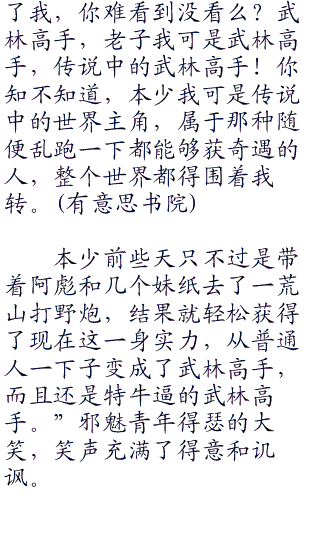 了我，你难看到没看么？武
林高手，老子我可是武林高
手，传说中的武林高手！你
知不知道，本少我可是传说
中的世界主角，属于那种随
便乱跑一下都能够获奇遇的
人，整个世界都得围着我
转。(有意思书院)
本少前些天只不过是带
着阿彪和几个妹纸去了一荒
山打野炮，结果就轻松获得
了现在这一身实力，从普通
人一下子变成了武林高手，
而且还是特牛逼的武林高
手。”邪魅青年得瑟的大
笑，笑声充满了得意和讥
讽。